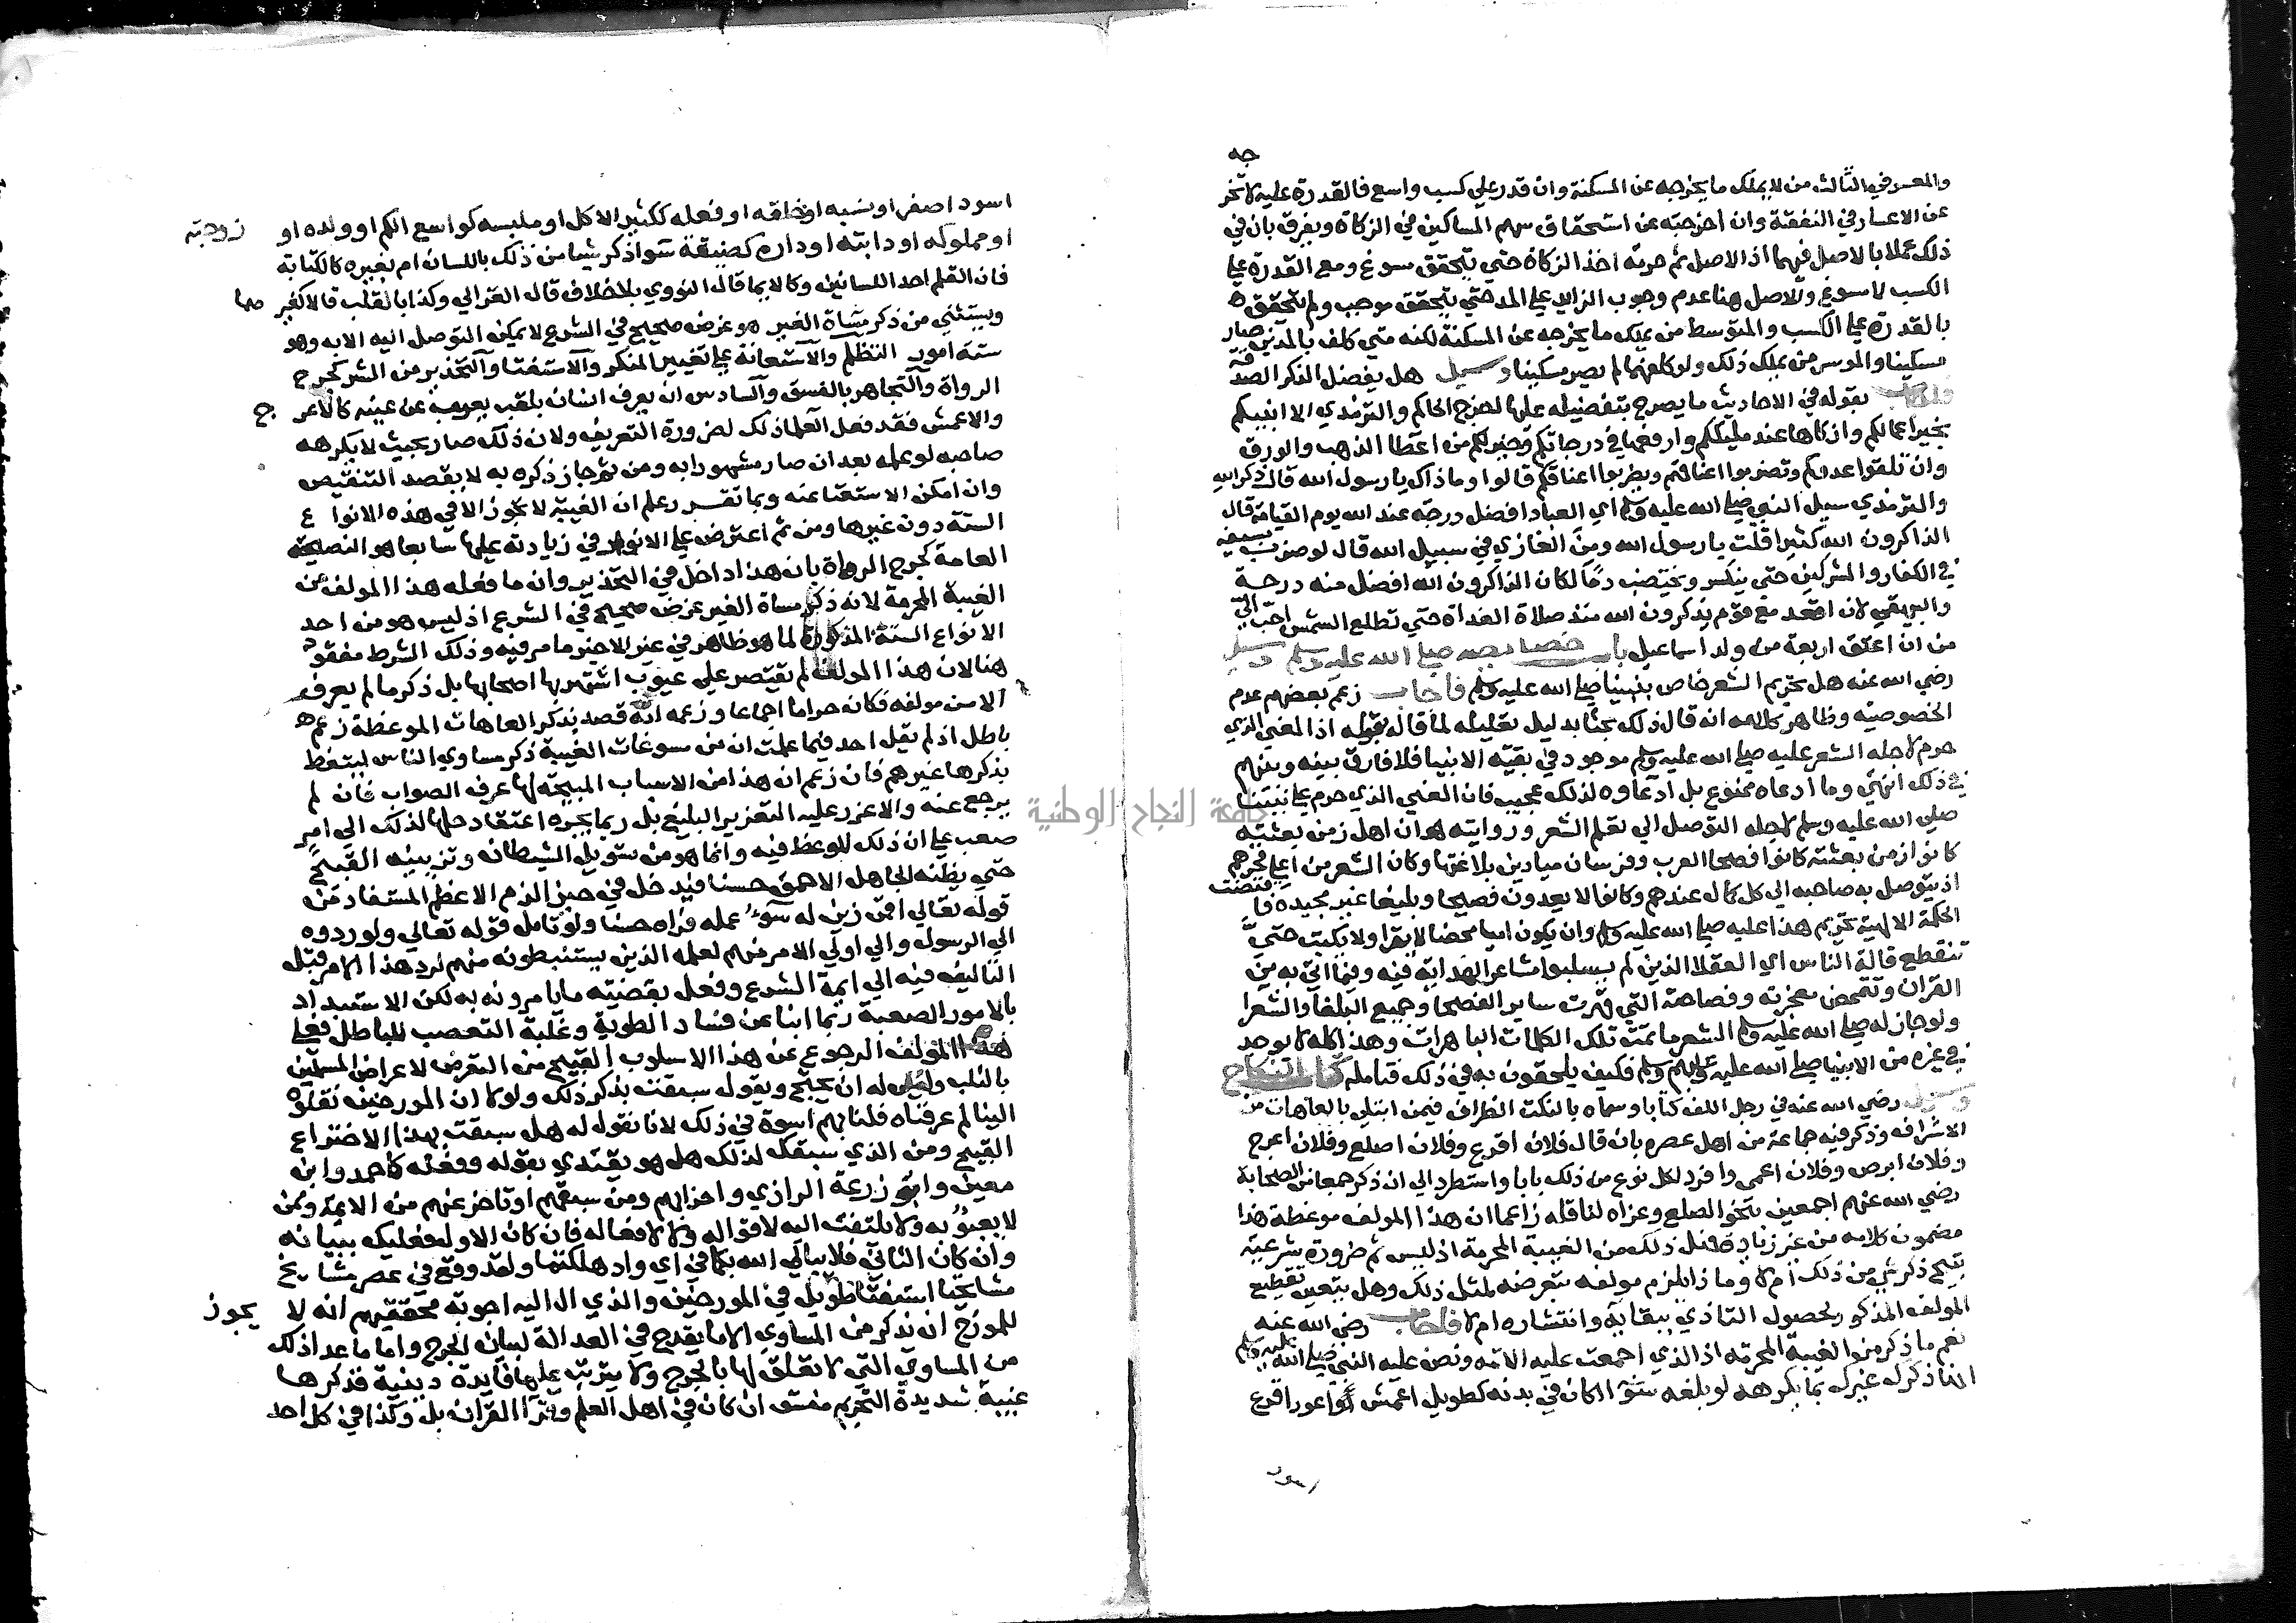 جه
والمعسر في الثالث من لا يملك ما يخرجه عن المسكنة وان قدر علي كسب واسع فالقدرة عليه لا تخر
عن الاعسار في النفقة وان اخرجته عن استحقاق سهم المساكين في الزكاة ويفرق بان في
ذلك عملا بالاصل فيهما اذ الاصل ثم حرمة اخذ الزكاة حتي يتحقق مسوغ ومع القدرة علي
الكسب لا مسوغ والاصل هنا عدم وجوب الزايد علي المد حتي يتحقق موجب ولم يتحقق
بالقدرة علي الكسب والمتوسط من يملك ما يخرجه عن المسكنة لكنه متي كلف بالمدين صار
مسكينا والموسر من يملك ذلك ولو كلفهما لم يصر مسكينا وسيل هل يفضل الذكر الصدقة
فاجاب بقوله في الاحاديث ما يصرح بتفضيله عليها لخرج الحاكم والترمذي الا انبيكم
بخير اعمالكم وازكاها عند مليككم وارفعها في درجاتكم وخير لكم من اعطا الذهب والورق
وان تلقوا عدوكم وتضربوا اعناقهم ويضربوا اعناقكم قالوا وما ذاك يا رسول الله قال ذكر الله
والترمذي سيل النبي صلي الله عليه وسلم اي العباد افضل درجة عند الله يوم القيامة قال
الذاكرون الله كثيرا قلت يا رسول الله ومن الغازي في سبيل الله قال لو ضرب بسيفه
في الكفار والمشركين حتي ينكسر ويختضب دمًا لكان الذاكرون الله افضل منه درجة
والبيهقي لان اقعد مع قوم يذكرون الله منذ صلاة الغداة حتي تطلع الشمس احب الي
من ان اعتق اربعة من ولد اسماعيل باب خصايصه صلي الله عليه وسلم وسيل
رضي الله عنه هل تحريم الشعر خاص بنبينا صلي الله عليه وسلم فاجاب زعم بعضهم عدم
الخصوصية وظاهر كلامه انه قال ذلك بحثا بدليل تعليله لما قاله بقوله اذ المعني الذي
حرم لاجله الشعر عليه صلي الله عليه وسلم موجود في بقية الانبيا فلا فارق بينه وبينهم
في ذلك انتهي وما ادعاه ممنوع بل ادعاوه لذلك عجيب فان المعني الذي حرم علي نبينا
صلي الله عليه وسلم لاجله التوصل الي تعلم الشعر وروايته هو ان اهل زمن بعثته
كانوا زمن بعثته كانوا فصحا العرب وفرسان ميادين بلاغتها وكان الشعر من اعلي فخرهم
اذ يتوصل به صاحبه الي كل كمال عندهم وكانوا لا يعدون فصيحا وبليغا غير مجيده فاقتضت
الحكمة الالهية تحريم هذا عليه صلي الله عليه وسلم وان يكون اميا محضا لا يقرا ولا يكتب حتي
تنقطع قالة الناس اي العقلا الذين لم يسلبوا مشاعر الهداية فيه وفيما اتي به من
القران وتتمحض معجزته وفصاحته التي قهرت ساير الفصحا وجميع البلغا والشعرا
ولو جاز له صلي الله عليه وسلم الشعر ما تمت تلك الكلمات الباهرات وهذا كله لا يوجد
في غيره من الانبيا صلي الله عليه وعليهم وسلم فكيف يلحقون به في ذلك فتامله كتاب النكاح
وسيل رضي الله عنه في رجل الف كتابا وسماه بالنكت الظراف فيمن ابتلي بالعاهات من
الاشراف وذكر فيه جماعة من اهل عصره بان قال فلان اقرع وفلان اصلع وفلان اعرج
وفلان ابرص وفلان اعمي وافرد لكل نوع من ذلك بابا واستطرد الي ان ذكر جمعا من الصحابة
رضي الله عنهم اجمعين بنحو الصلع وعزاه لناقله زاعما ان هذا المولف موعظة هذا
مضمون كلامه من غير زيادة فهل ذلك من الغيبة المحرمة اذ ليس ثم ضرورة شرعية
تبيح ذكر شي من ذلك ام لا وماذا يلزم مولفه بتعرضه لمثل ذلك وهل يتعين تقطيع
المولف المذكور لحصول التاذي ببقايه وانتشاره ام لا فاجاب رضي الله عنه
نعم ما ذكر من الغيبة المحرمة اذ الذي اجمعت عليه الامة ونص عليه النبي صلي الله عليه وسلم
انها ذكرك غيرك بما يكرهه لو بلغه سوا اكان في بدنه كطويل اعمش او اعور اقرع
اسود
اسود اصفر او نسبه او خلقه او فعله ككثير الاكل او ملبسه كواسع الكم او ولده او زوجته
او مملوكه او دابته او داره كضيقة سوا ذكر شيا من ذلك باللسان ام بغيره كالكتابة
فان القلم احد اللسانين وكالايما قال النووي بلا خلاف قال الغزالي وكذا بالقلب فالاكفر
ويستثني من ذكر مساة الغير هو غرض صحيح في الشرع لا يمكن التوصل اليه الا به وهو
ستة امور التظلم والاستعانة علي تغيير المنكر والاستفتا والتحذير من الشر كجرح
الرواة والتجاهر بالفسق والسادس ان يعرف انسان بلقب يعرب عن عيبه كالاعرج
والاعمش فقد فعل العلما ذلك لضرورة التعريف ولان ذلك صار بحيث لا يكرهه
صاحبه لو علمه بعد ان صار مشهورا به ومن ثم جاز ذكره به لا بقصد التنقيص
وان امكن الاستغنا عنه وبما تقرر علم ان الغيبة لا تجوز الا في هذه الانواع
الستة دون غيرها ومن ثم اعترض علي الانوار في زيادته عليها سابعا هو النصيحة
العامة كجرح الرواة بان هذا داخل في التحذير وان ما فعله هذا المولف من
الغيبة المحرمة لانه ذكر مساة الغير غرض صحيح في الشرع اذ ليس هو من احد
الانواع الستة المذكورة لما هو ظاهر في غير الاخير ما مر فيه وذلك الشرط مفقود
هنا لان هذا المولف لم يقتصر علي عيوب اشتهر بها اصحابها بل ذكر ما لم يعرف
الا من مولفه فكان حراما اجماعا وزعمه انه قصد بذكر العاهات الموعظة زعم
باطل اذ لم يقل احد فيما علمت ان من مسوغات الغيبة ذكر مساوي الناس ليتعظ
بذكرها غيرهم فان زعم ان هذا من الاسباب المبيحة لها عرف الصواب فان لم
يرجع عنه والا عزر عليه التعزير البليغ بل ربما يجره اعتقاد حلها لذلك الي امر
صعب علي ان ذلك للوعظ فيه وانما هو من تسويل الشيطان وتزيينه القبيح
حتي يظنه الجاهل الاحمق حسنا فيدخل في حيز الذم الاعظم المستفاد من
قوله تعالي افمن زين له سوء عمله فراه حسنا ولو تامل قوله تعالي ولو ردوه
الي الرسول والي اولي الامر منهم لعلمه الذين يستنبطونه منهم لرد هذا الامر قبل
التاليف فيه الي ايمة الشرع وفعل بقضيته ما يامرونه به لكن الاستبداد
بالامور الصعبة ربما انبا عن فساد الطوية وغلبة التعصب للباطل فعلي
هذا المولف الرجوع عن هذا الاسلوب القبيح من التعرض لاعراض المسلمين
بالثلب وليس له ان يحتج ويقول سبقت بذكر ذلك ولولا ان المورخين نقلوه
الينا لم عرفناه فلنا بهم اسوة في ذلك لانا نقول له هل سبقت بهذا الاختراع
القبيح ومن الذي سبقك لذلك هل هو يقتدي بقوله وفعله كاحمد وابن
معين وابو زرعة الرازي واحزابهم ومن سبقهم او تاخر عنهم من الايمة ومن
لا يعبؤ به ولا يلتفت اليه لا قواله ولا لافعاله فان كان الاول فعليك ببيانه
وان كان الثاني فلا يبالي الله بكما في اي واد هلكتما ولقد وقع في عصر مشايخ
مشايخنا استفتا طويل في المورخين والذي ال اليه اجوبة محققيهم انه لا يجوز
للمورخ ان يذكر من المساوي الا ما يقدح في العدالة لبيان الجرح واما ما عدا ذلك
من المساوي التي لا تعلق لها بالجرح ولا يترتب عليها فايدة دينية فذكرها
غيبة شديدة التحريم مفسق ان كان في اهل العلم وقرا القران بل وكذا في كل احد
جامعة النجاح الوطنية